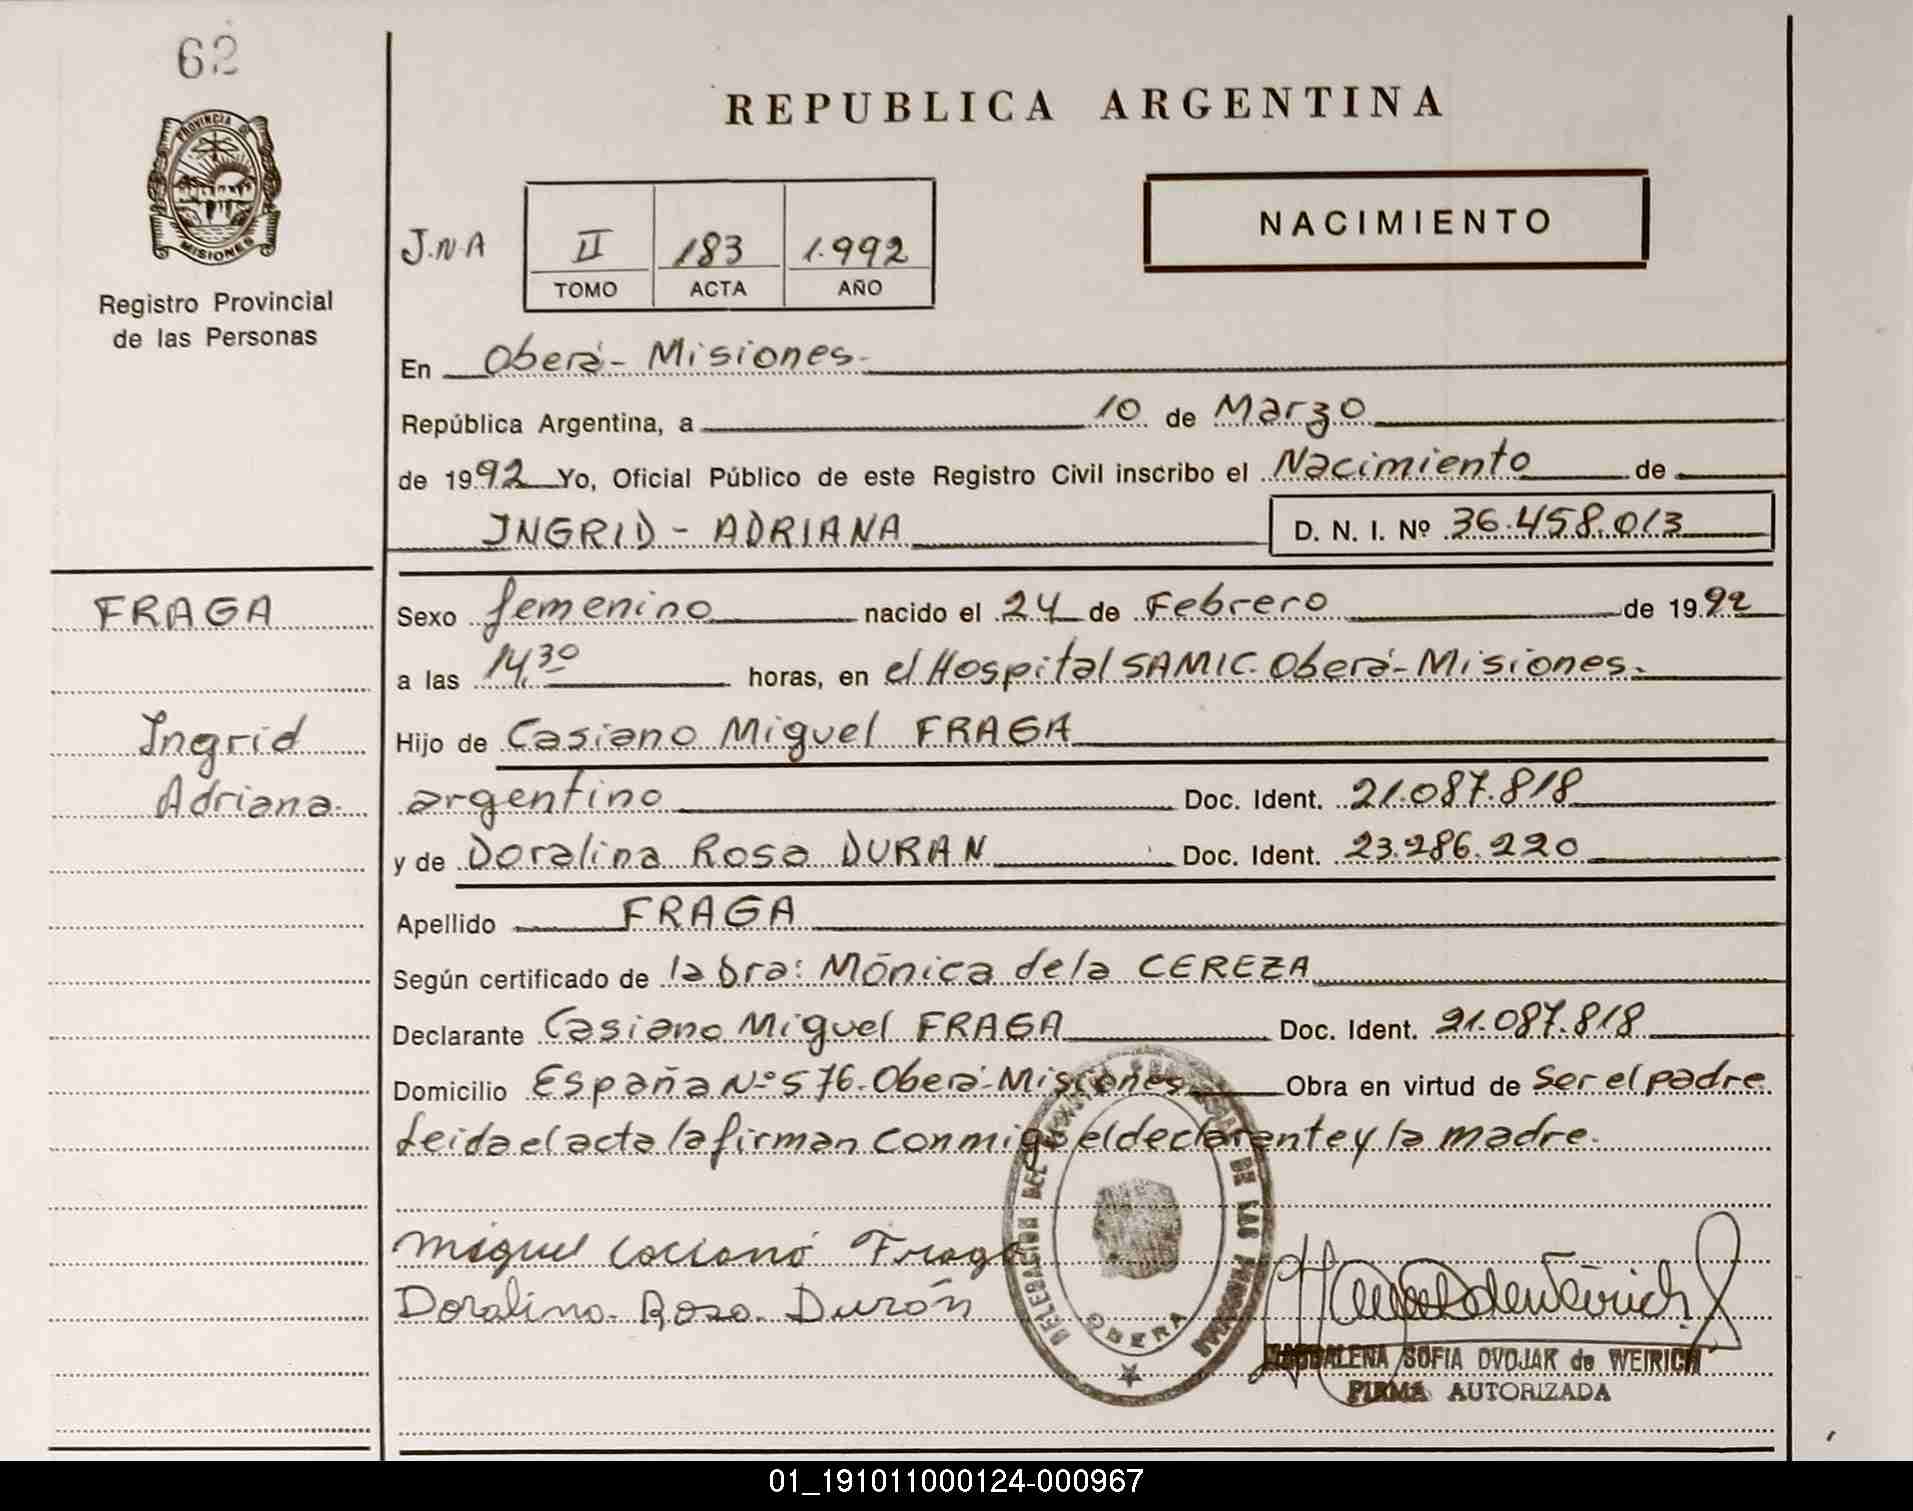 62
PROVINCIA DE
MISIONES
Registro Provincial
de las Personas
REPUBLICA ARGENTINA
NACIMIENTO
J.N.A II 183 1.992
TOMO ACTA AÑO
En Oberá - Misiones.
República Argentina, a 10 de Marzo
de 1992 Yo, Oficial Público de este Registro Civil inscribo el Nacimiento de
INGRID - ADRIANA D. N. I. Nº 36.458.013
FRAGA
Ingrid
Adriana.
Sexo femenino nacido el 24 de Febrero de 1992
a las 14,30 horas, en el Hospital SAMIC. Oberá - Misiones.
Hijo de Casiano Miguel FRAGA
argentino Doc. Ident. 21.087.818
y de Doralina Rosa DURAN Doc. Ident. 23.286.220
Apellido FRAGA
Según certificado de la Dra: Mónica de la CEREZA
Declarante Casiano Miguel FRAGA Doc. Ident. 21.087.818
Domicilio España Nº 576. Oberá - Misiones Obra en virtud de Ser el padre
Leida el acta la firman conmigo el declarante y la madre.
Miguel Caciano Fraga
Doralina Rosa Durán
DELEGACION DEL REGISTRO PROVINCIAL DE LAS PERSONAS
OBERA
MAGDALENA SOFIA DVOJAK de WEIRICH
FIRMA AUTORIZADA
01_191011000124-000967